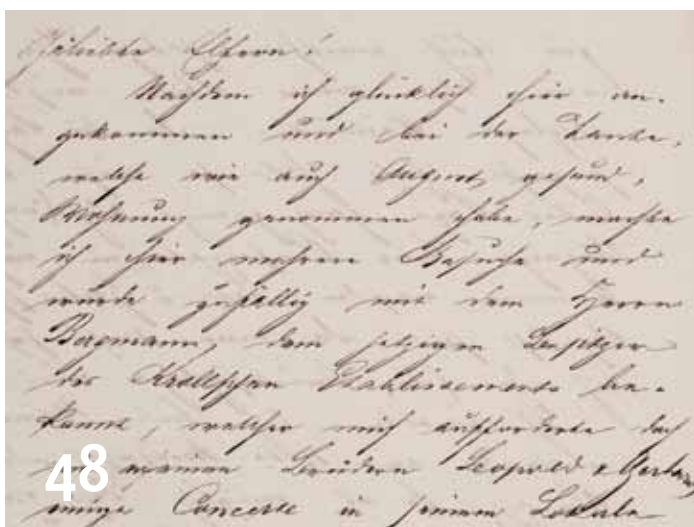 Geliebte Eltern!
Nachdem ich glücklich hier an-
gekommen und bei der Tante,
welche wie auch August gesund,
Wohnung genommen habe, machte
ich hier mehrere Besuche und
wurde zufällig mit dem Herrn
Bergmann, dem jetzigen Besitzer
des Krollschen Etablissements be-
kannt, welcher mich aufforderte doch
meinen Brüdern Leopold &
einige Concerte in seinem Locale
48